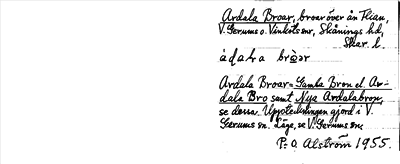 Ardala Broar, broar över ån Flian,
V. Gerums o. Vinköls snr, Skånings hd,
Skar. l.
Ardala Broar = Gamla Bron el. Ar-
dala Bro samt Nya Ardalabron,
se dessa. Uppteckningen gjord i V.
Gerums sn. Läge, se V. Gerums sn.
P. O. Alström 1955.